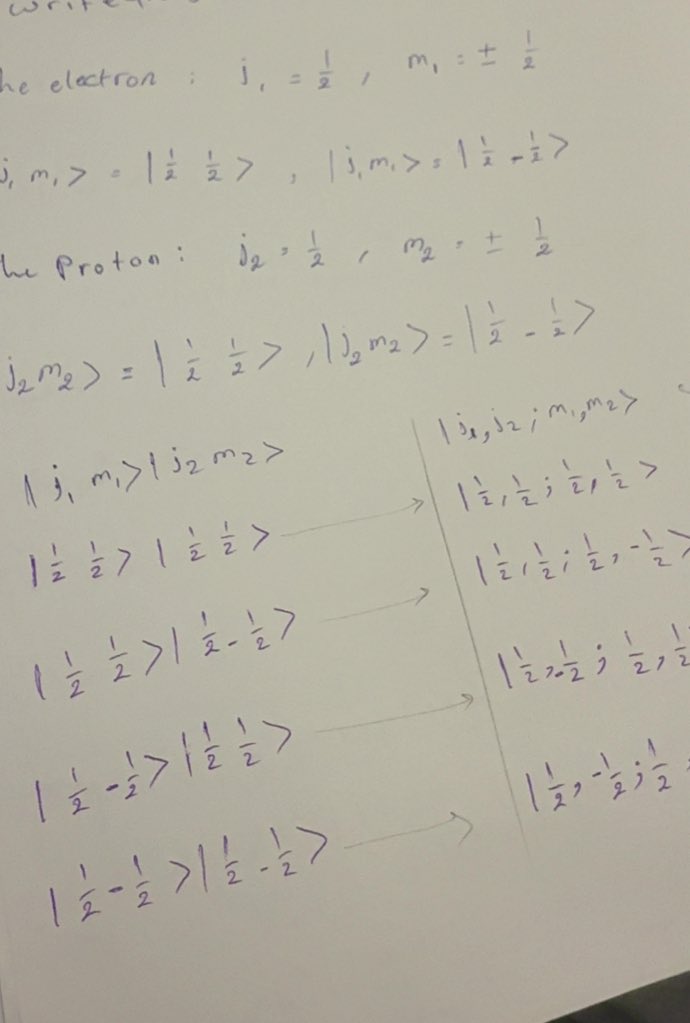 he electron : j₁ = 1/2 , m₁ = ± 1/2
j₁ m₁> = |1/2 1/2> , |j₁ m₁> = |1/2 -1/2>
he Proton : j₂ = 1/2 , m₂ = ± 1/2
j₂ m₂> = |1/2 1/2> , |j₂ m₂> = |1/2 -1/2>
|j₁ m₁>|j₂ m₂> |j₁, j₂ ; m₁, m₂>
|1/2 1/2>|1/2 1/2> → |1/2, 1/2 ; 1/2, 1/2>
|1/2 1/2>|1/2 -1/2> → |1/2, 1/2 ; 1/2, -1/2>
|1/2 -1/2>|1/2 1/2> → |1/2, -1/2 ; 1/2, 1/2
|1/2 -1/2>|1/2 -1/2> → |1/2, -1/2 ; 1/2